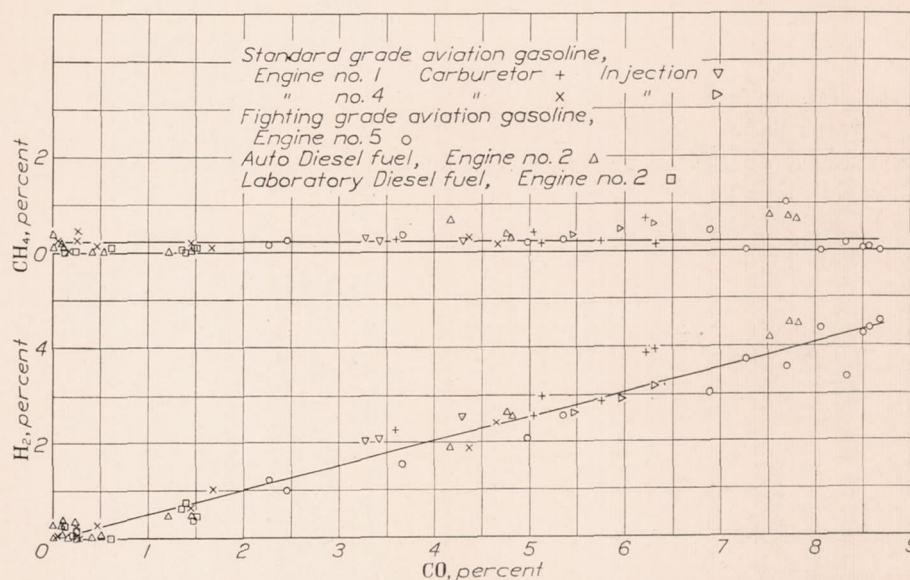 Standard grade aviation gasoline,
Engine no. 1 Carburetor + Injection ▽
" no. 4 " x " ▷
Fighting grade aviation gasoline,
Engine no. 5 ○
Auto Diesel fuel, Engine no. 2 △
Laboratory Diesel fuel, Engine no. 2 □
CH₄, percent
2
0
H₂, percent
4
2
0 1 2 3 4 5 6 7 8 9
CO, percent